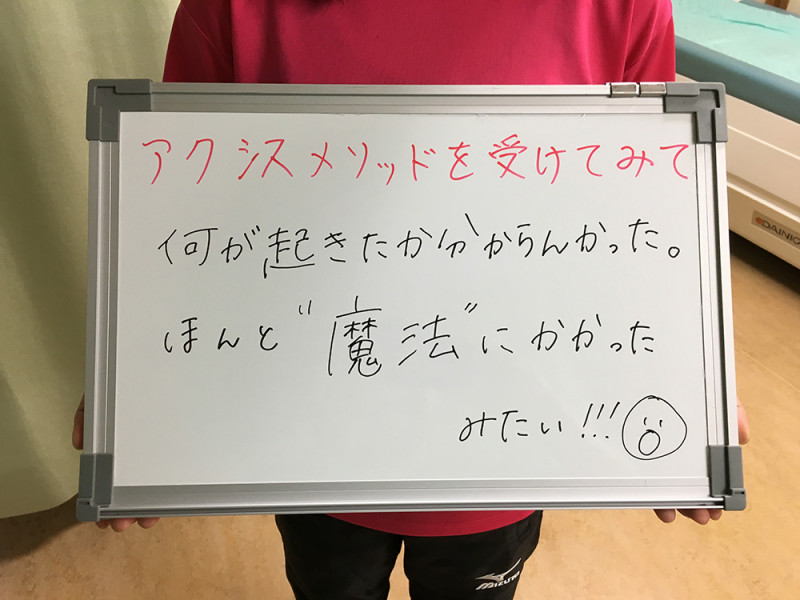 アクシスメソッドを受けてみて
何が起きたか分からんかった。
ほんと"魔法"にかかった
みたい!!!
MIZUNO